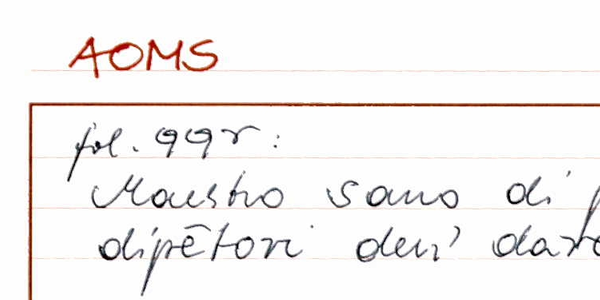 AOMS
fol. 99r:
Maestro sano di p
dipētori deu' dare